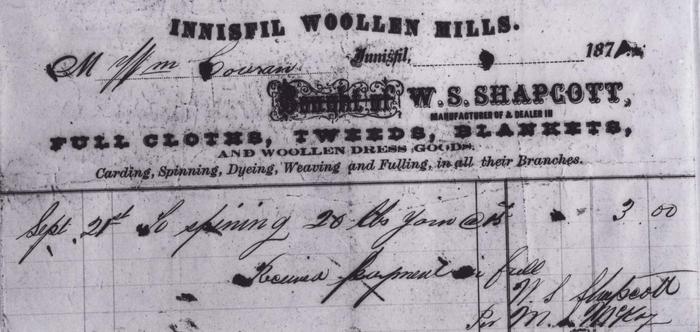 INNISFIL WOOLLEN MILLS.
M Wm Cowan Innisfil, 187
Bought of W. S. SHAPCOTT,
MANUFACTURER OF & DEALER IN
FULL CLOTHS, TWEEDS, BLANKETS,
AND WOOLLEN DRESS GOODS.
Carding, Spinning, Dyeing, Weaving and Fulling, in all their Branches.
Sept. 21st To spining 20 lbs yarn @ 15 " " 3 00
Received payment in full
W. S. Shapcott
Per M. McKay